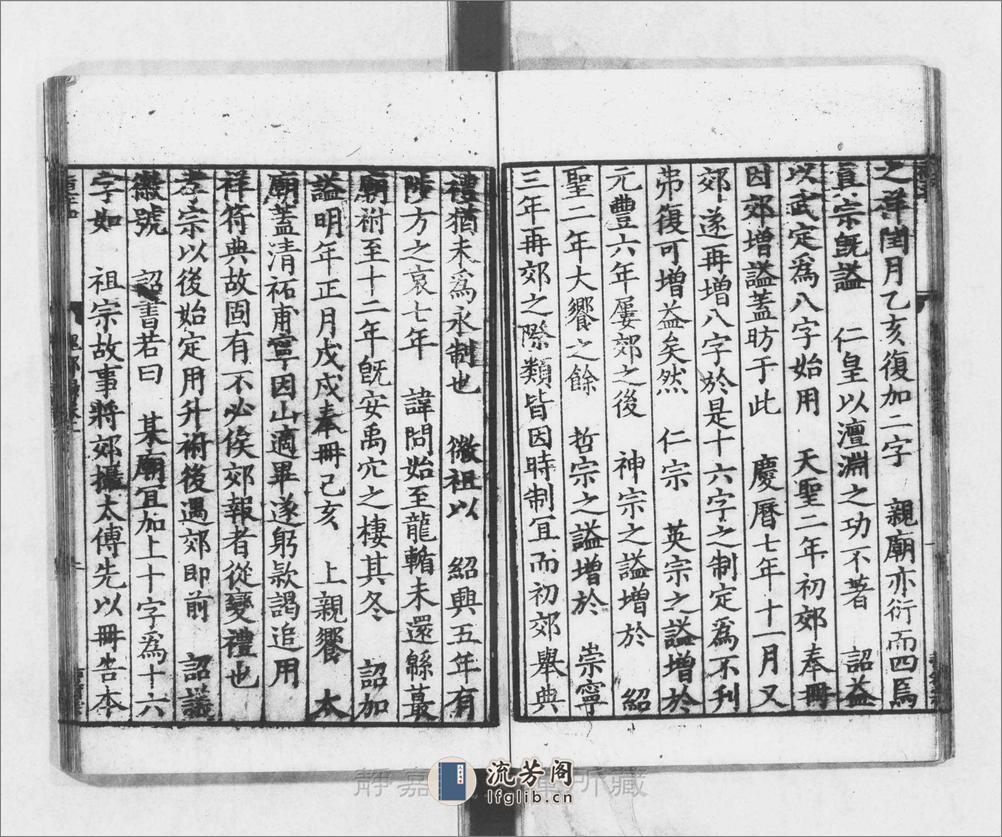 之祥閏月乙亥復加二字　親廟亦衍而四焉
真宗旣謚　仁皇以澶淵之功不著　詔益
以武定爲八字始用　天聖二年初郊奉冊
因郊增謚蓋昉于此　慶曆七年十一月又
郊遂再增八字於是十六字之制定爲不刋
弗復可增益矣然　仁宗　英宗之謚增於
元豐六年屢郊之後　神宗之謚增於　紹
聖二年大饗之餘　哲宗之謚增於　崇寧
三年再郊之際類皆因時制宜而初郊舉典
禮猶未爲永制也　徽祖以　紹興五年有
陟方之哀七年　諱問始至龍輴未還緜蕞
廟祔至十二年旣安禹穴之棲其冬　詔加
謚明年正月戊戌奉冊己亥　上親饗　太
廟蓋清祏甫寧因山適畢遂躬款謁追用
祥符典故固有不必俟郊報者從變禮也
孝宗以後始定用升祔後遇郊即前　詔議
徽號　詔書若曰　某廟宜加上十字爲十六
字如　祖宗故事將郊攝太傅先以冊告本
流芳阁
lfglib.cn
靜嘉 所藏